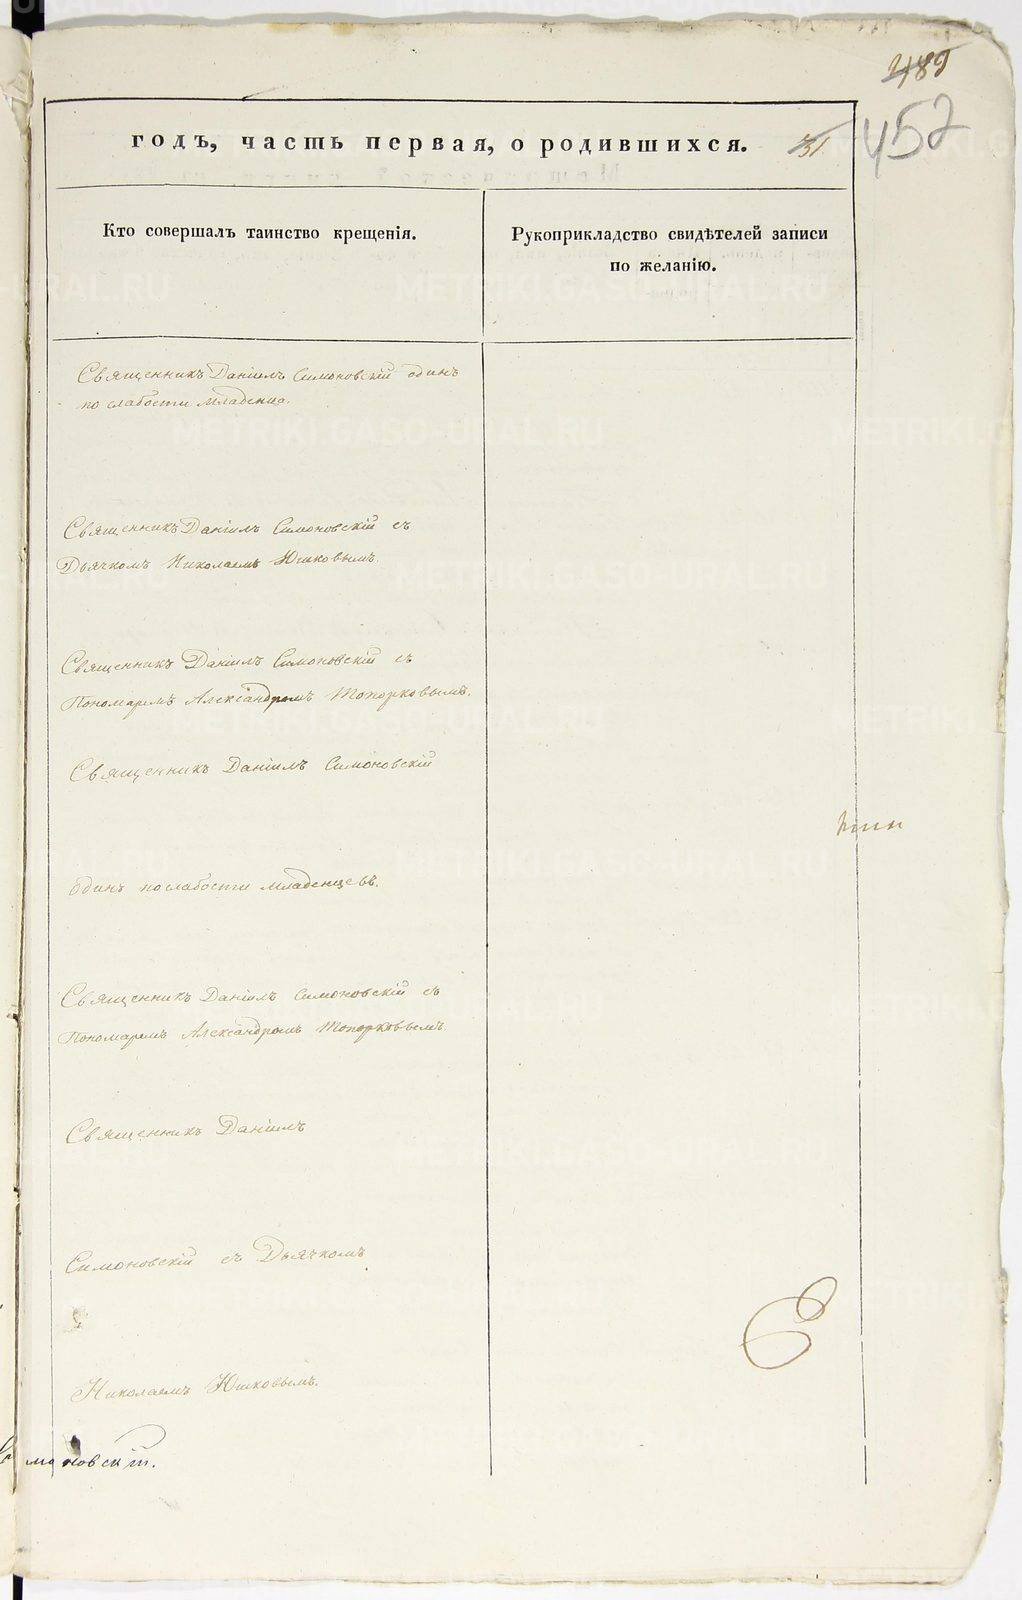 489
452
годъ, часть первая, о родившихся.
31
Кто совершалъ таинство крещенія.
Рукоприкладство свидѣтелей записи
по желанію.
Священникъ Даніилъ Симоновскій одинъ
по слабости младенца.
Священникъ Даніилъ Симоновскій съ
Дьячкомъ Николаемъ Юшковымъ.
Священникъ Даніилъ Симоновскій съ
Пономаремъ Александромъ Топорковымъ.
Священникъ Даніилъ Симоновскій
одинъ по слабости младенцевъ.
Священникъ Даніилъ Симоновскій съ
Пономаремъ Александромъ Топорковымъ.
Священникъ Даніилъ
Симоновскій съ Дьячкомъ
Николаемъ Юшковымъ.
Симоновскій.
METRIKI.GASO-URAL.RU